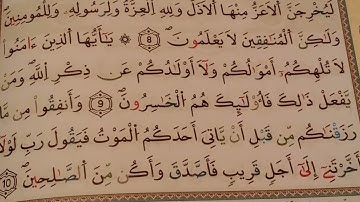 لَيُخْرِجَنَّ اَلَاعَزُّ مِنْهَا اَلَاذَلَّ وَلِلهِ اِلْعِزَّةُ وَلِرَسُولِهِۦ وَلِلْمُومِنِينَ
وَلَٰكِنَّ اَلْمُنَٰفِقِينَ لَا يَعْلَمُونَ 8 ۞ يَٰٓأَيُّهَا اَلذِينَ ءَامَنُوا
لَا تُلْهِكُمُۥٓ أَمْوَٰلُكُمْ وَلَآ أَوْلَٰدُكُمْ عَن ذِكْرِ اِللَّهِ وَمَنْ
يَّفْعَلْ ذَٰلِكَ فَأُوْلَٰٓئِكَ هُمُ اُلْخَٰسِرُونَ 9 وَأَنفِقُوا مِن مَّا
رَزَقْنَٰكُم مِّن قَبْلِ أَنْ يَّاتِىَ أَحَدَكُمُ اُلْمَوْتُ فَيَقُولَ رَبِّ لَوْلَآ
أَخَّرْتَنِےٓ إِلَىٰٓ أَجَلٖ قَرِيبٖ فَأَصَّدَّقَ وَأَكُن مِّنَ اَلصَّٰلِحِينَ 10